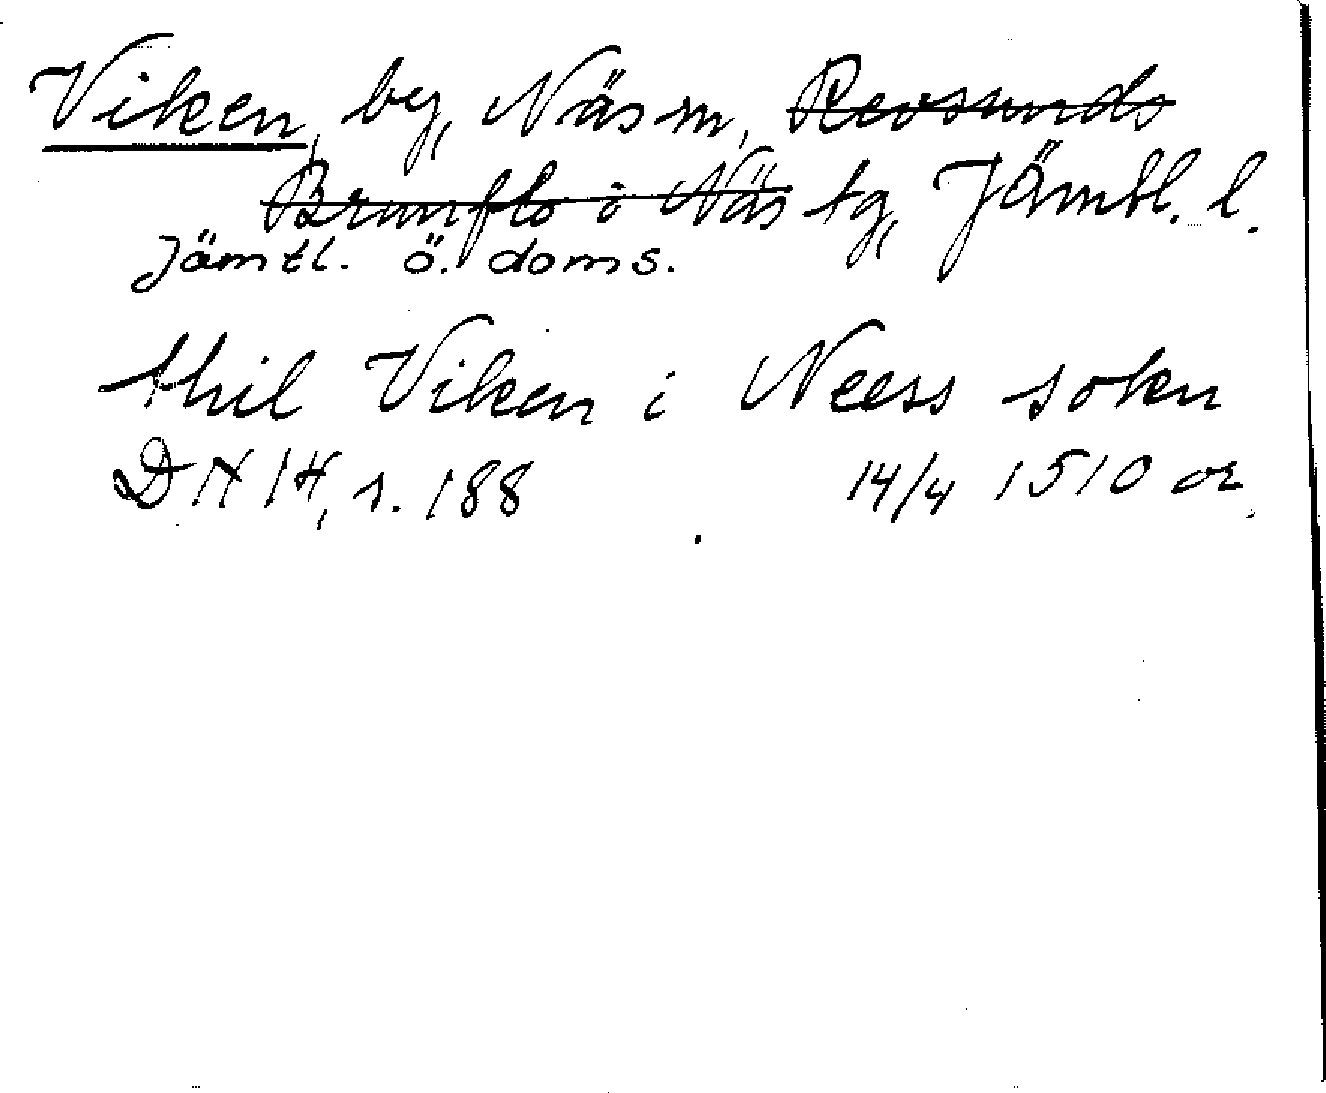 Viken, by, Näs sn, Revsunds
Brunflo i Näs tg, Jämtl. l.
Jämtl. ö. doms.
thil Viken i Neess sokn
DN 14, s. 188 14/4 1510 or.